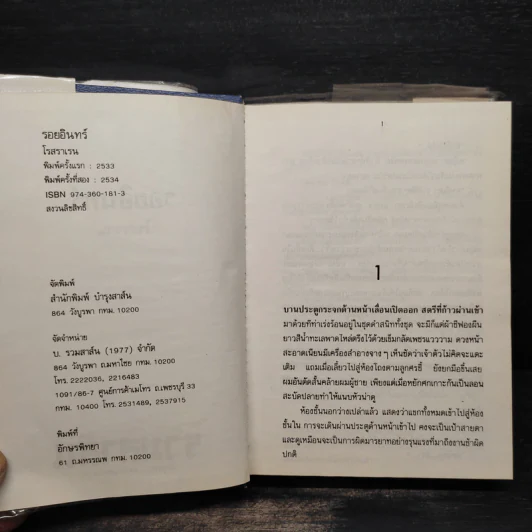 รอยอินทร์
โรสราเรน
พิมพ์ครั้งแรก : 2533
พิมพ์ครั้งที่สอง : 2534
ISBN 974-360-181-3
สงวนลิขสิทธิ์
จัดพิมพ์
สำนักพิมพ์ บำรุงสาส์น
864 วังบูรพา กทม. 10200
จัดจำหน่าย
บ. รวมสาส์น (1977) จำกัด
864 วังบูรพา ถ.มหาไชย กทม. 10200
โทร. 2222036, 2216483
1091/86-7 ศูนย์การค้าเมโทร ถ.เพชรบุรี 33
กทม. 10400 โทร. 2531489, 2537915
พิมพ์ที่
อักษรพิทยา
61 ถ.มหรรณพ กทม. 10200
1
1
บานประตูกระจกด้านหน้าเลื่อนเปิดออก สตรีที่ก้าวผ่านเข้า
มาด้วยทีท่าเร่งร้อนอยู่ในชุดดำสนิททั้งชุด จะมีก็แต่ผ้าชีฟองผืน
ยาวสีน้ำทะเลพาดไหล่ตรึงไว้ด้วยเข็มกลัดเพชรแวววาม ดวงหน้า
สะอาดเนียนมีเครื่องสำอางจาง ๆ เห็นชัดว่าเจ้าตัวไม่คิดจะแตะ
เติม แถมเมื่อเลี้ยวไปสู่ห้องโถงตามลูกศรชี้ ยังยกมือขึ้นเสย
ผมอันตัดสั้นคล้ายผมผู้ชาย เพียงแต่เมื่อหยักศกเกาะกันเป็นลอน
สะบัดปลายทำให้แนบหัวน่าดู
ห้องชั้นนอกว่างเปล่าแล้ว แสดงว่าแขกทั้งหมดเข้าไปสู่ห้อง
ชั้นใน การจะเดินผ่านประตูด้านหน้าเข้าไป คงจะเป็นเป้าสายตา
และดูเหมือนจะเป็นการผิดมารยาทอย่างรุนแรงที่มาถึงงานช้าผิด
ปกติ